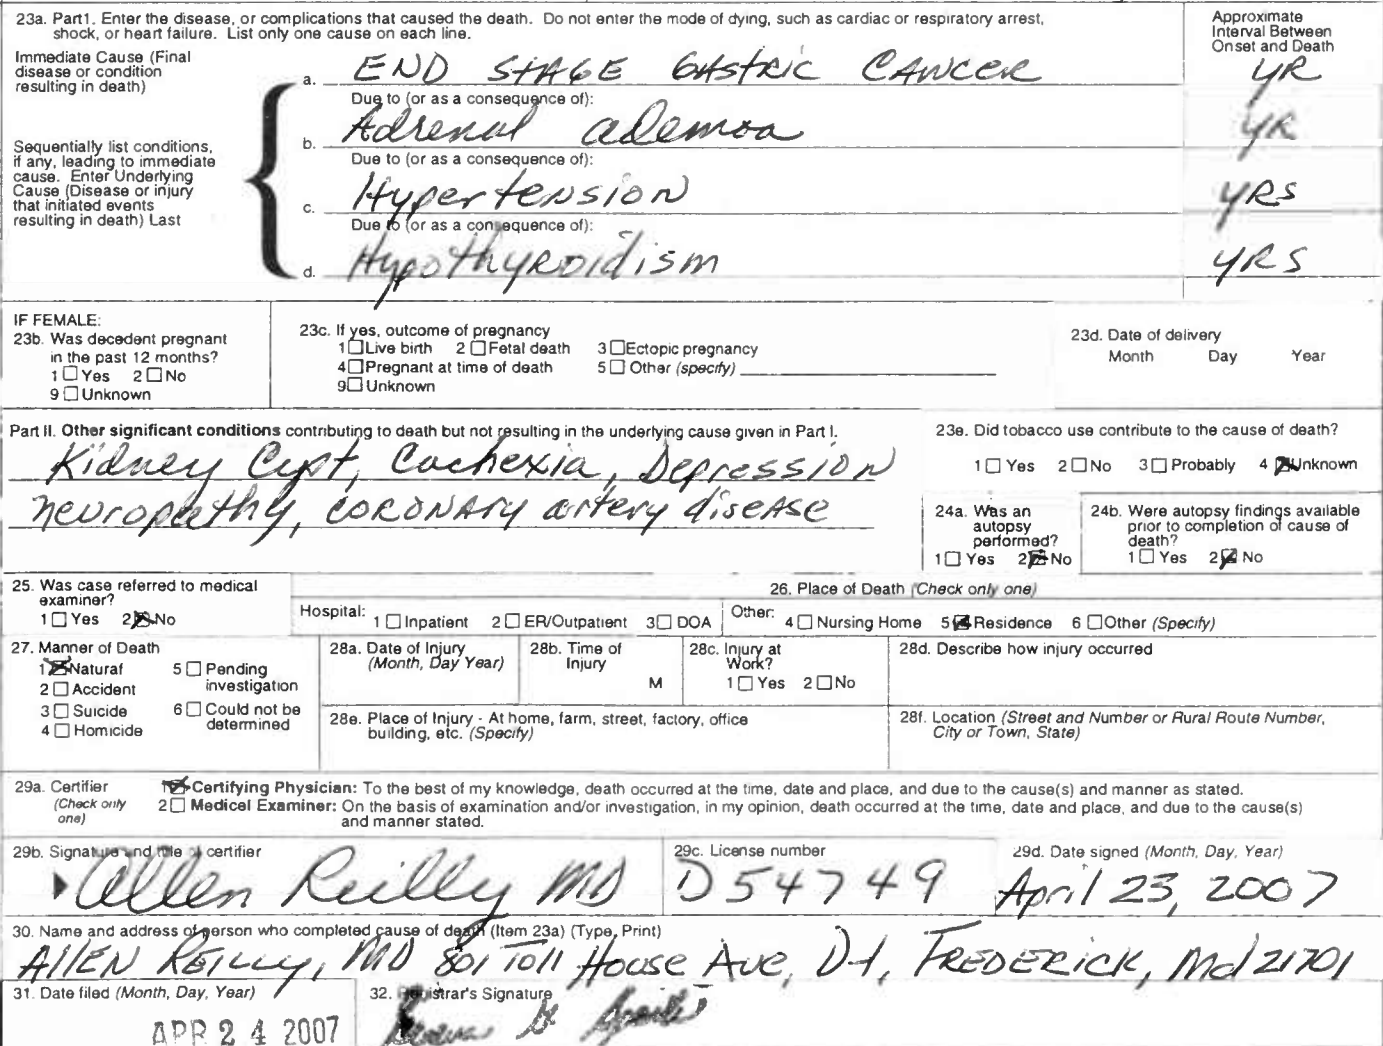 23a. Part1. Enter the disease, or complications that caused the death. Do not enter the mode of dying, such as cardiac or respiratory arrest,
shock, or heart failure. List only one cause on each line.
Approximate
Interval Between
Onset and Death
Immediate Cause (Final
disease or condition
resulting in death)
a. END STAGE GASTRIC CANCER YR
Due to (or as a consequence of):
b. Adrenal ademoa YR
Sequentially list conditions,
if any, leading to immediate
cause. Enter Underlying
Cause (Disease or injury
that initiated events
resulting in death) Last
Due to (or as a consequence of):
c. Hypertension YRS
Due to (or as a consequence of):
d. Hypothyroidism YRS
IF FEMALE:
23b. Was decedent pregnant
in the past 12 months?
1 ☐ Yes 2 ☐ No
9 ☐ Unknown
23c. If yes, outcome of pregnancy
1 ☐ Live birth 2 ☐ Fetal death 3 ☐ Ectopic pregnancy
4 ☐ Pregnant at time of death 5 ☐ Other (specify)
9 ☐ Unknown
23d. Date of delivery
Month Day Year
Part II. Other significant conditions contributing to death but not resulting in the underlying cause given in Part I.
Kidney Cyst, Cachexia, Depression
neuropathy, CORONARY artery disease
23e. Did tobacco use contribute to the cause of death?
1 ☐ Yes 2 ☐ No 3 ☐ Probably 4 ☒ Unknown
24a. Was an
autopsy
performed?
1 ☐ Yes 2 ☒ No
24b. Were autopsy findings available
prior to completion of cause of
death?
1 ☐ Yes 2 ☒ No
25. Was case referred to medical
examiner?
1 ☐ Yes 2 ☒ No
26. Place of Death (Check only one)
Hospital: 1 ☐ Inpatient 2 ☐ ER/Outpatient 3 ☐ DOA Other: 4 ☐ Nursing Home 5 ☒ Residence 6 ☐ Other (Specify)
27. Manner of Death
1 ☒ Natural 5 ☐ Pending
investigation
2 ☐ Accident
3 ☐ Suicide 6 ☐ Could not be
determined
4 ☐ Homicide
28a. Date of Injury
(Month, Day Year)
28b. Time of
Injury
M
28c. Injury at
Work?
1 ☐ Yes 2 ☐ No
28d. Describe how injury occurred
28e. Place of Injury - At home, farm, street, factory, office
building, etc. (Specify)
28f. Location (Street and Number or Rural Route Number,
City or Town, State)
29a. Certifier
(Check only
one)
1 ☒ Certifying Physician: To the best of my knowledge, death occurred at the time, date and place, and due to the cause(s) and manner as stated.
2 ☐ Medical Examiner: On the basis of examination and/or investigation, in my opinion, death occurred at the time, date and place, and due to the cause(s)
and manner stated.
29b. Signature and title of certifier
Allen Reilly MD
29c. License number
D54749
29d. Date signed (Month, Day, Year)
April 23, 2007
30. Name and address of person who completed cause of death (Item 23a) (Type, Print)
AllEN REILLY, MD 801 Toll House Ave, D-1, FREDERICK, Md 21701
31. Date filed (Month, Day, Year)
APR 24 2007
32. Registrar's Signature